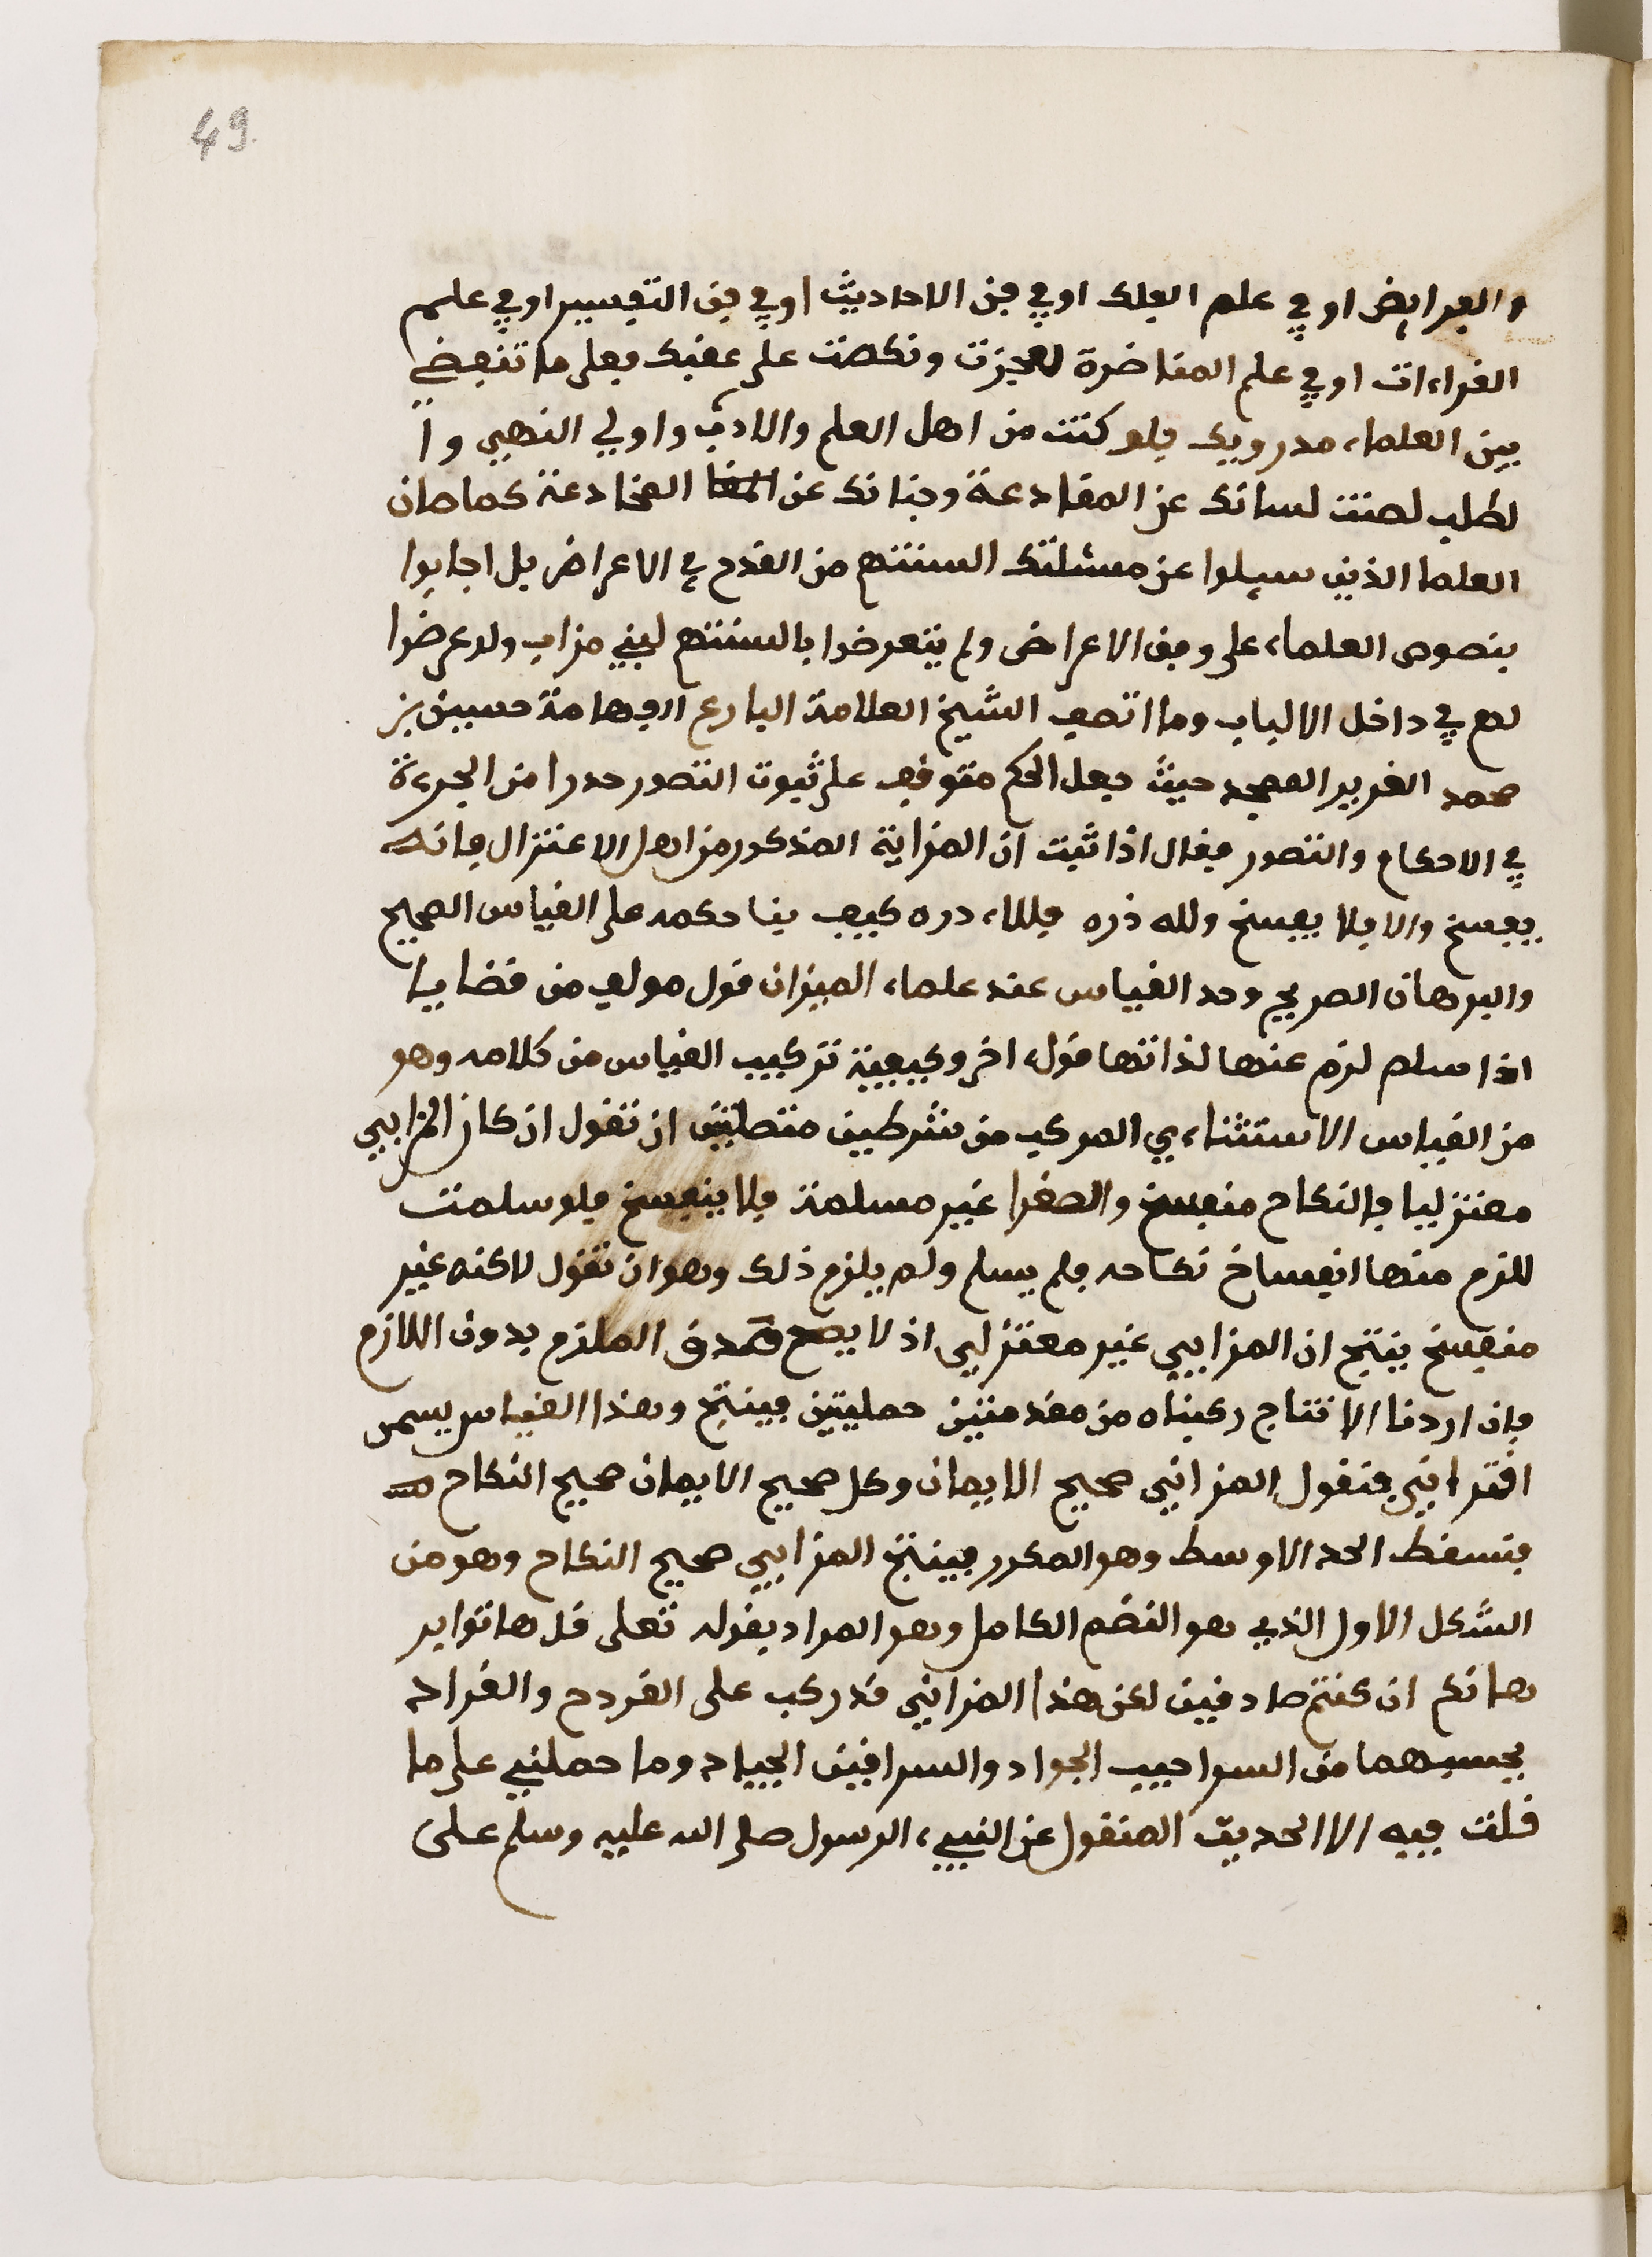 49
والفرايض او في علم الفلك او في فن الاحاديث او في فن التفسير او في علم
القراءات او في علم المناضرة لعجزت ونكصت على عقبك فعلى ما تنفض
بين العلماء مدرويك فلو كنت من اهل العلم والادب واولي النهى وا
لطلب لصنت لسانك عن المقادعة وجنانك عن المخادعة كما صان
العلما الذين سيلوا عن مسئلتك السنتهم من القدح في الاعراض بل اجابوا
بنصوص العلماء على وفق الاعراض ولم يتعرضوا بالسنتهم لبني مزاب ولا عرضوا
لهم في داخل الالباب وما اتصف الشيخ العلامة البارع الفهامة حسين بن
محمد الغرير الممجد حيث جعل الحكم متوقف على ثبوت التصور حدرا من الجرءة
في الاحكام والتصور فقال اذا ثبت ان المزابية المذكور من اهل الاعتزال فانه
يفسخ والا فلا يفسخ ولله ذره فللاء دره كيف بنا حكمه على القياس الصحيح
والبرهان الصريح وحد القياس عند علماء الميزان قول مولف من قضايا
اذا سلم لزم عنها لذاتها قول اخر وكيفية تركيب القياس من كلامه وهو
من القياس الاستثناءي المركب من شرطين متصلتين ان تقول ان كان المزابي
معتزليا فالنكاح منفسخ والصغرا غير مسلمة فلا ينفسخ فلو سلمت
للزم منها انفساخ نكاحه فلم يسلم ولم يلزم ذلك وهو ان تقول لاكنه غير
منفسخ ينتج ان المزابي غير معتزلي اذ لا يصح صدق الملزم بدون اللازم
فان اردنا الانتاج ركبناه من مقدمتين حمليتين فينتج وهذا القياس يسمى
اقترانني فنقول المزابي صحيح الايمان وكل صحيح الايمان صحيح النكاح
فتسقط الحد الاوسط وهو المكرر فينتج المزابي صحيح النكاح وهو من
الشكل الاول الذي هو النضم الكامل وهو المراد بقوله تعلى قل هاتوا بر
هانكم ان كنتم صادقين لكن هذا المزابي قد ركب على القردح والقراد
يحسبهما من السراحيب الجواد والسرافين الجياد وما حملني على ما
قلت فيه الا الحديث المنقول عن النبيء الرسول صلى الله عليه وسلم على